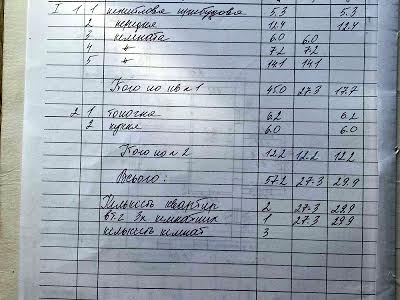 I 1 1 5.3 5.3
2 передня 12.4 12.4
3 кімната 6.0 6.0
4 " 7.2 7.2
5 " 14.1 14.1
Кого по кв 1 45.0 27.3 17.7
2 1 топочна 6.2 6.2
2 кухня 6.0 6.0
Кого по 2 12.2 12.2 12.2
Всього: 57.2 27.3 29.9
Кількість квартир 2 27.3 29.9
в т.г 3х кімнатних 1 27.3 29.9
кількість кімнат 3